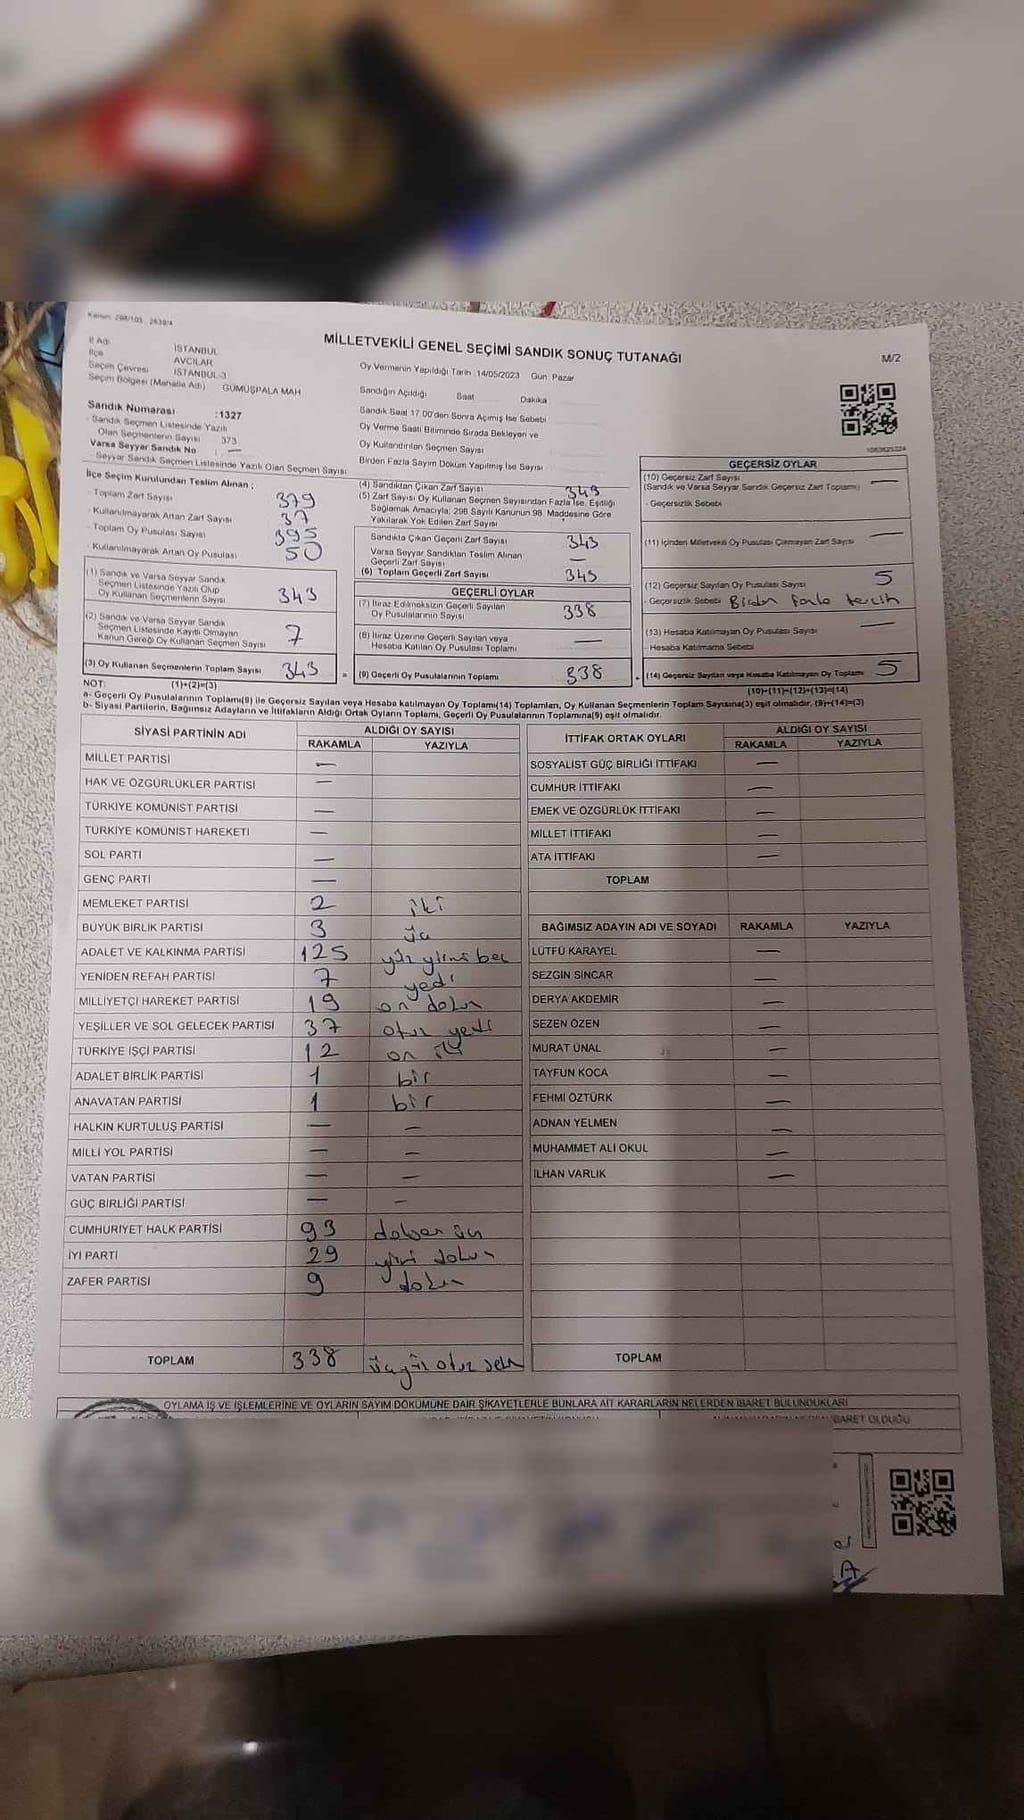 Kanun: 298/105 - 2839/4
MİLLETVEKİLİ GENEL SEÇİMİ SANDIK SONUÇ TUTANAĞI
M/2
İl Adı İSTANBUL
İlçe AVCILAR
Seçim Çevresi İSTANBUL-3
Seçim Bölgesi (Mahalle Adı) GÜMÜŞPALA MAH
Sandık Numarası :1327
- Sandık Seçmen Listesinde Yazılı
Olan Seçmenlerin Sayısı 373
Varsa Seyyar Sandık No —
- Seyyar Sandık Seçmen Listesinde Yazılı Olan Seçmen Sayısı
Oy Vermenin Yapıldığı Tarih :14/05/2023 Gün: Pazar
Sandığın Açıldığı Saat Dakika
Sandık Saat 17.00'den Sonra Açılmış İse Sebebi
Oy Verme Saati Bitiminde Sırada Bekleyen ve
Oy Kullandırılan Seçmen Sayısı
Birden Fazla Sayım Döküm Yapılmış İse Sayısı
İlçe Seçim Kurulundan Teslim Alınan ;
- Toplam Zarf Sayısı 379
- Kullanılmayarak Artan Zarf Sayısı 37
- Toplam Oy Pusulası Sayısı 395
- Kullanılmayarak Artan Oy Pusulası 50
(1) Sandık ve Varsa Seyyar Sandık
Seçmen Listesinde Yazılı Olup
Oy Kullanan Seçmenlerin Sayısı 343
(2) Sandık ve Varsa Seyyar Sandık
Seçmen Listesinde Kayıtlı Olmayan
Kanun Gereği Oy Kullanan Seçmen Sayısı 7
(3) Oy Kullanan Seçmenlerin Toplam Sayısı 343
(4) Sandıktan Çıkan Zarf Sayısı 343
(5) Zarf Sayısı Oy Kullanan Seçmen Sayısından Fazla İse, Eşitliği
Sağlamak Amacıyla, 298 Sayılı Kanunun 98. Maddesine Göre
Yakılarak Yok Edilen Zarf Sayısı
Sandıkta Çıkan Geçerli Zarf Sayısı 343
Varsa Seyyar Sandıktan Teslim Alınan
Geçerli Zarf Sayısı —
(6) Toplam Geçerli Zarf Sayısı 343
GEÇERLİ OYLAR
(7) İtiraz Edilmeksizin Geçerli Sayılan
Oy Pusulalarının Sayısı 338
(8) İtiraz Üzerine Geçerli Sayılan veya
Hesaba Katılan Oy Pusulası Toplamı —
(9) Geçerli Oy Pusulalarının Toplamı 338
GEÇERSİZ OYLAR
(10) Geçersiz Zarf Sayısı —
(Sandık ve Varsa Seyyar Sandık Geçersiz Zarf Toplamı)
- Geçersizlik Sebebi
(11) İçinden Milletvekili Oy Pusulası Çıkmayan Zarf Sayısı —
(12) Geçersiz Sayılan Oy Pusulası Sayısı 5
- Geçersizlik Sebebi Birden fazla tercih
(13) Hesaba Katılmayan Oy Pusulası Sayısı —
- Hesaba Katılmama Sebebi
(14) Geçersiz Sayılan veya Hesaba Katılmayan Oy Toplamı 5
NOT: (1)+(2)=(3)
(10)+(11)+(12)+(13)=(14)
a- Geçerli Oy Pusulalarının Toplamı(9) ile Geçersiz Sayılan veya Hesaba katılmayan Oy Toplamı(14) Toplamları, Oy Kullanan Seçmenlerin Toplam Sayısına(3) eşit olmalıdır. (9)+(14)=(3)
b- Siyasi Partilerin, Bağımsız Adayların ve İttifakların Aldığı Ortak Oyların Toplamı, Geçerli Oy Pusulalarının Toplamına(9) eşit olmalıdır.
SİYASİ PARTİNİN ADI ALDIĞI OY SAYISI
RAKAMLA YAZIYLA
MİLLET PARTİSİ —
HAK VE ÖZGÜRLÜKLER PARTİSİ —
TÜRKİYE KOMÜNİST PARTİSİ —
TÜRKİYE KOMÜNİST HAREKETİ —
SOL PARTİ —
GENÇ PARTİ —
MEMLEKET PARTİSİ 2 iki
BÜYÜK BİRLİK PARTİSİ 3 üç
ADALET VE KALKINMA PARTİSİ 125 yüz yirmi beş
YENİDEN REFAH PARTİSİ 7 yedi
MİLLİYETÇİ HAREKET PARTİSİ 19 on dokuz
YEŞİLLER VE SOL GELECEK PARTİSİ 37 otuz yedi
TÜRKİYE İŞÇİ PARTİSİ 12 on iki
ADALET BİRLİK PARTİSİ 1 bir
ANAVATAN PARTİSİ 1 bir
HALKIN KURTULUŞ PARTİSİ — —
MİLLİ YOL PARTİSİ — —
VATAN PARTİSİ — —
GÜÇ BİRLİĞİ PARTİSİ — —
CUMHURİYET HALK PARTİSİ 93 doksan üç
İYİ PARTİ 29 yirmi dokuz
ZAFER PARTİSİ 9 dokuz
TOPLAM 338 üçyüz otuz sekiz
İTTİFAK ORTAK OYLARI ALDIĞI OY SAYISI
RAKAMLA YAZIYLA
SOSYALİST GÜÇ BİRLİĞİ İTTİFAKI —
CUMHUR İTTİFAKI —
EMEK VE ÖZGÜRLÜK İTTİFAKI —
MİLLET İTTİFAKI —
ATA İTTİFAKI —
TOPLAM
BAĞIMSIZ ADAYIN ADI VE SOYADI RAKAMLA YAZIYLA
LÜTFÜ KARAYEL —
SEZGİN SİNCAR —
DERYA AKDEMİR —
SEZEN ÖZEN —
MURAT ÜNAL —
TAYFUN KOCA —
FEHMİ ÖZTÜRK —
ADNAN YELMEN —
MUHAMMET ALİ OKUL —
İLHAN VARLIK —
TOPLAM
OYLAMA İŞ VE İŞLEMLERİNE VE OYLARIN SAYIM DÖKÜMÜNE DAİR ŞİKAYETLERLE BUNLARA AİT KARARLARIN NELERDEN İBARET BULUNDUKLARI
İBARET OLDUĞU